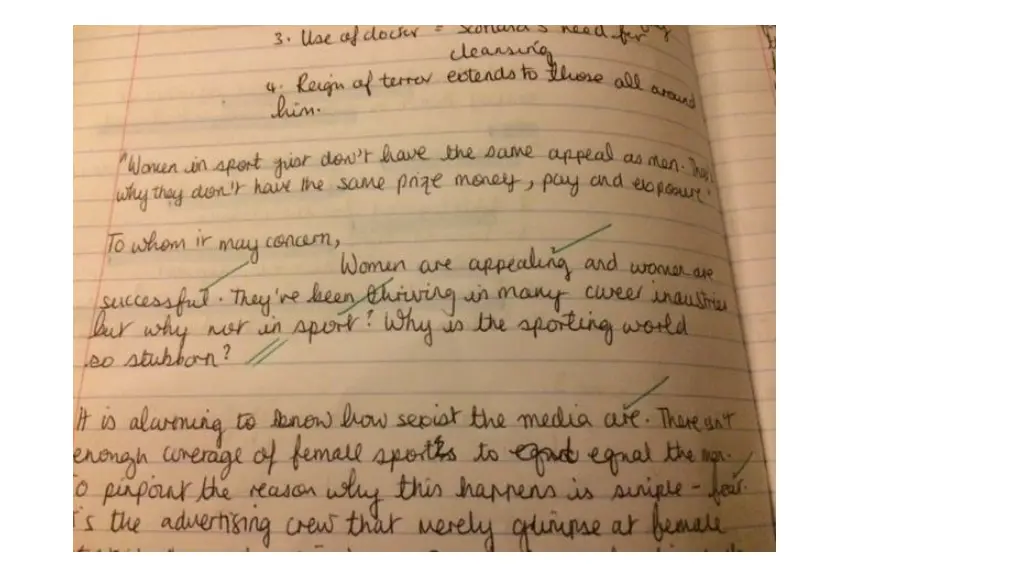 3. Use of doctor = Scotland's need for
cleansing
4. Reign of terror extends to those all around
him.
"Women in sport just don't have the same appeal as men. That's
why they don't have the same prize money, pay and exposure"
To whom it may concern,
Women are appealing and women are
successful. They've been thriving in many career industries
but why not in sport? Why is the sporting world
so stubborn?
It is alarming to know how sexist the media are. There isn't
enough coverage of female sports to equal the men.
To pinpoint the reason why this happens is simple - fear.
It's the advertising crew that merely glimpse at female